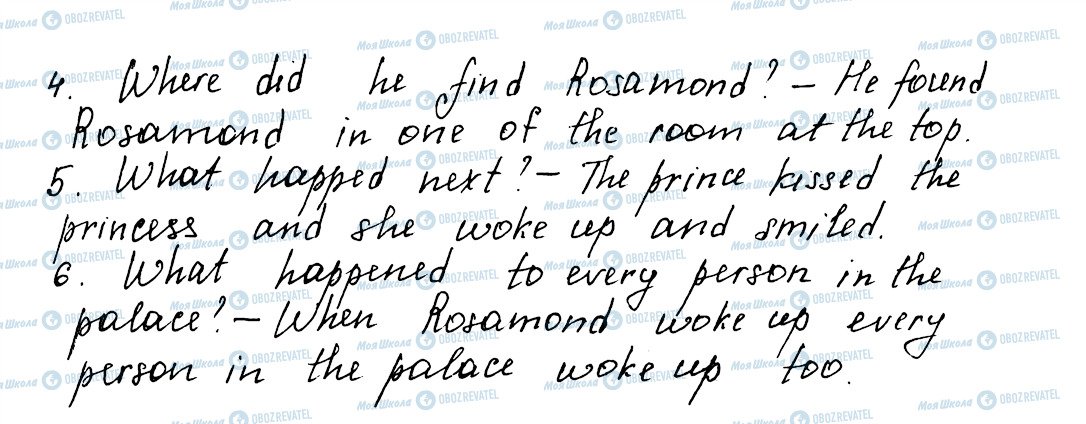 4. Where did he find Rosamond? – He found
Rosamond in one of the room at the top.
5. What happed next? – The prince kissed the
princess and she woke up and smiled.
6. What happened to every person in the
palace? – When Rosamond woke up every
person in the palace woke up too.